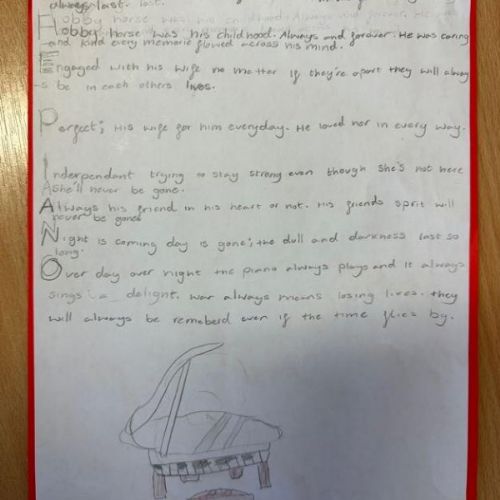 always last. last.
Hobby horse was his childhood. Always and forever. He
Hobby horse was his childhood. Always and forever. He was caring
and kind every memorie flowed across his mind.
Engaged with his wife no matter if they're apart they will alway
-s be in each others lives.
Perfect; His wife for him everyday. He loved her in every way.
Inderpendant trying to stay strong even though she's not here
A she'll never be gone.
Always his friend in his heart or not. His friends sprit will
never be gone.
Night is coming day is gone; the dull and darkness last so
long.
Over day over night the piano always plays and it always
sings delight. War always means losing lives. they
will always be rememberd even if the time flies by.